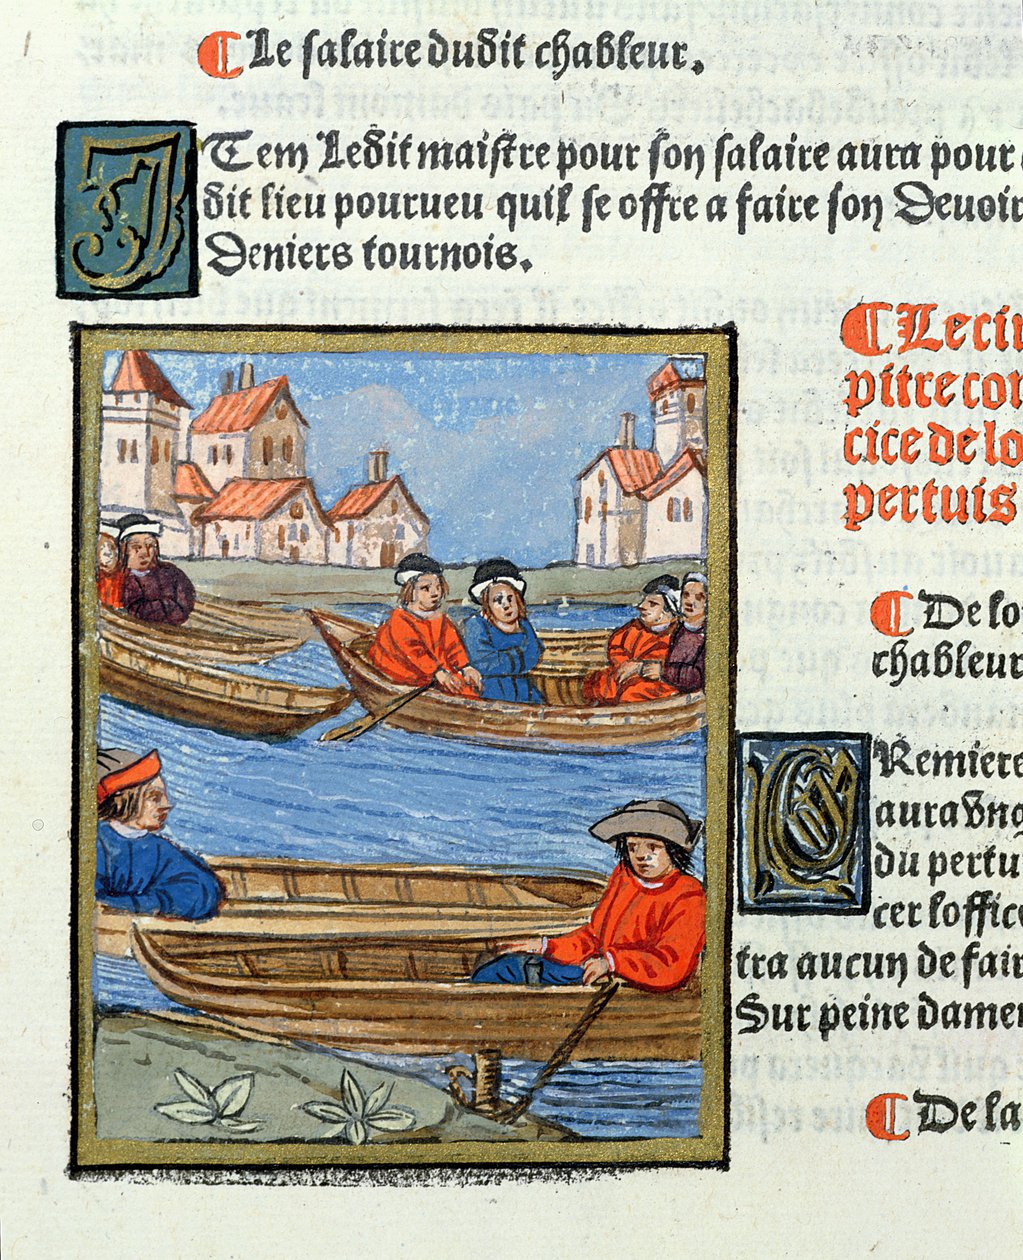 Le salaire dudit chableur.
ITem Ledit maistre pour son salaire aura pour
dit lieu pourueu quil se offre a faire son Deuoir
Deniers tournois.
Le cin
pitre con
cice de lo
pertuis
De lo
chableur
QRemiere
aura vng
du pertu
cer loffice
tra aucun de fair
Sur peine damen
De la